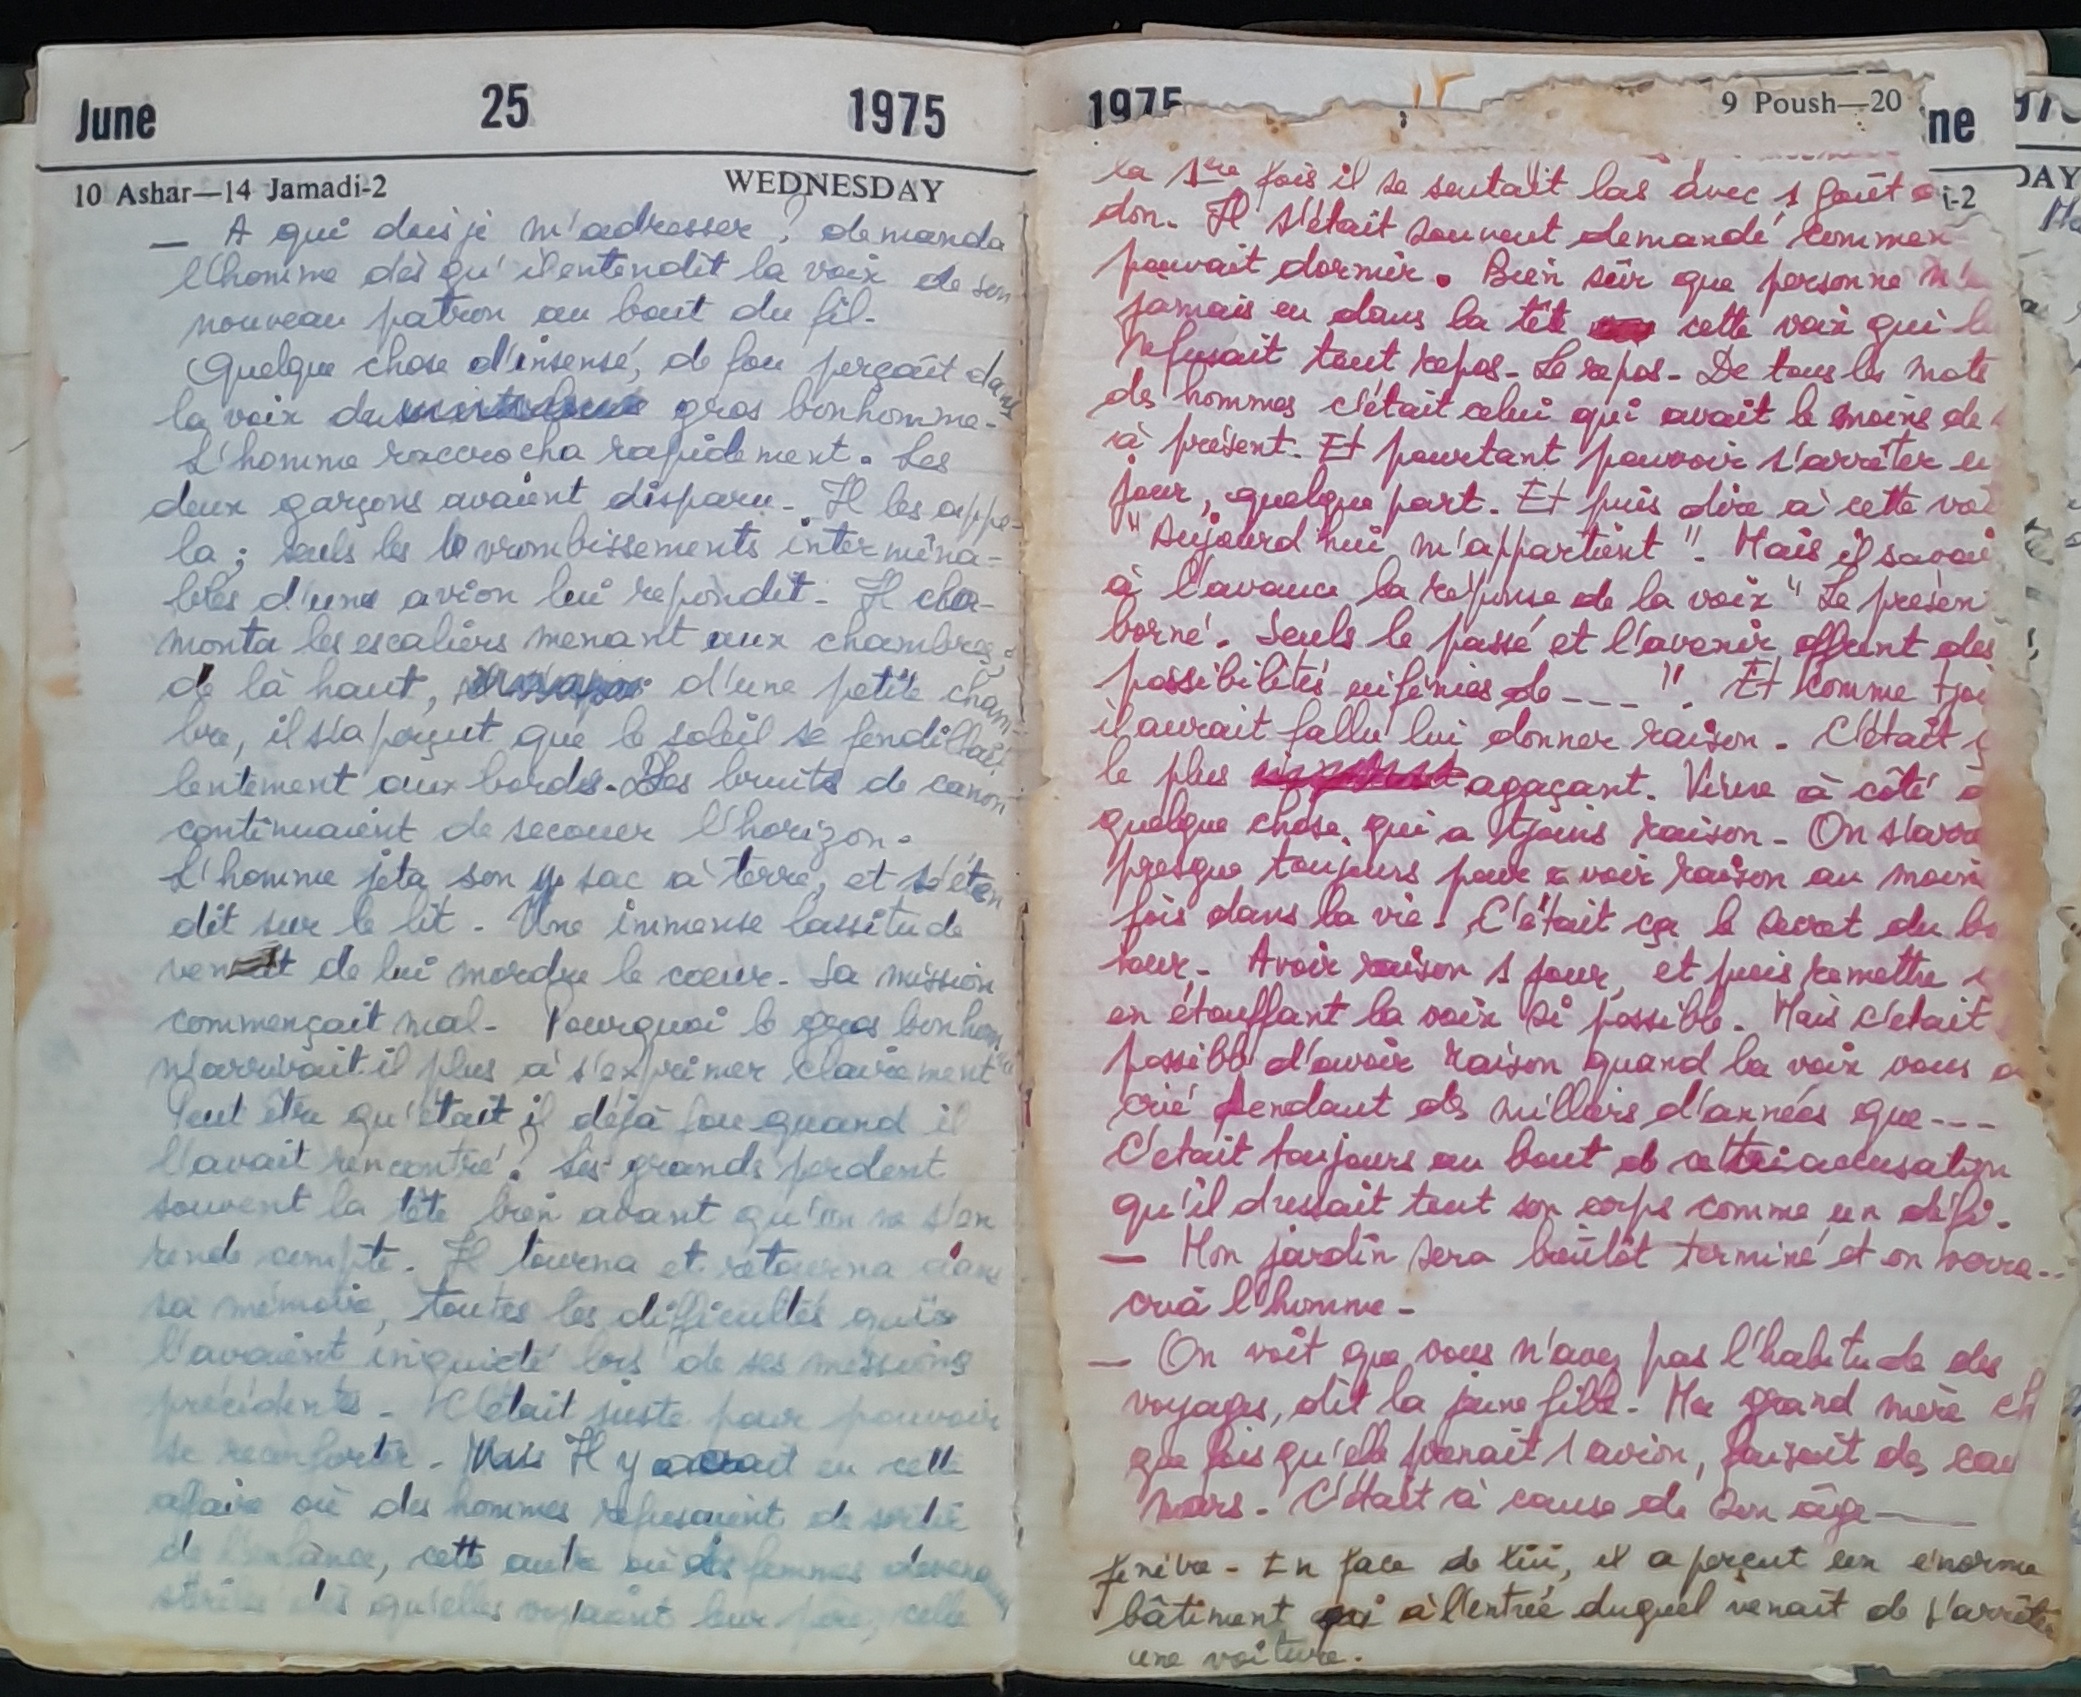 June 25 1975
10 Ashar—14 Jamadi-2 WEDNESDAY
— A qui dois je m'adresser ? demanda
l'homme dès qu'il entendit la voix de son
nouveau patron au bout du fil.
Quelque chose d'insensé, de fou perçait dans
la voix du gros bonhomme.
L'homme raccrocha rapidement. Les
deux garçons avaient disparu. Il les appe-
la ; seuls les vrombissements intermina-
bles d'une avion lui repondit. Il
monta les escaliers menant aux chambres
de là haut, d'une petite cham-
bre, il s'aperçut que le soleil se fendillait
lentement aux bords. Des bruits de canon
continuaient de secouer l'horizon.
L'homme jeta son sac à terre, et s'éten
dit sur le lit. Une immense lassitude
venait de lui mordre le cœur. Sa mission
commençait mal. Pourquoi le gros bonhom
n'arrivait il plus à s'exprimer clairement
Peut être qu'était il déjà fou quand il
l'avait rencontré ? Les grands perdent
souvent la tête bien avant qu'on ne s'en
rende compte. Il tourna et retourna dans
sa mémoire, toutes les difficultés qui
l'avaient inquiété lors de ses missions
précédentes. C'était juste pour pouvoir
se reconforter. Il y avait eu cette
afaire où des hommes refusaient de sortir
de l'enfance, cette autre où des femmes
stériles dès qu'elles voyaient leur père, celle
1975 9 Poush—20 ne
i-2
la 1ère fois il se sentait las avec 1 goût
don. Il s'était souvent demandé commen
pouvait dormir. Bien sûr que personne n'
jamais eu dans la tête cette voix qui l
refusait tout repos. Le repos. De tous les mots
des hommes c'était celui qui avait le moins de
à présent. Et pourtant pouvoir s'arrêter
jour, quelque part. Et puis dire à cette voi
"Aujourd'hui m'appartient". Mais il savai
à l'avance la réponse de la voix "Le présen
borné. Seuls le passé et l'avenir offrent des
possibilités infinies de ---". Et comme tjo
il aurait fallu lui donner raison. C'était
le plus agaçant. Vivre à côté
quelque chose qui a tjours raison. On s'arra
presque toujours pour avoir raison au moin
fois dans la vie. C'était ça le secret du bo
heur. Avoir raison 1 jour, et puis remettre
en étouffant la voix si possible. Mais c'était
possible d'avoir raison quand la voix vous a
crié pendant des milliers d'années que---
C'était toujours au bout de cette accusation
qu'il dressait tout son corps comme un défi.
— Mon jardin sera bientôt terminé et on verra..
cria l'homme.
— On voit que vous n'avez pas l'habitude des
voyages, dit la jeune fille. Ma grand mère ch
que fois qu'elle prenait l'avion, faisait des cau
mars. C'était à cause de son âge—
En face de lui, il aperçut un énorme
bâtiment à l'entrée duquel venait de s'arrêter
une voiture.